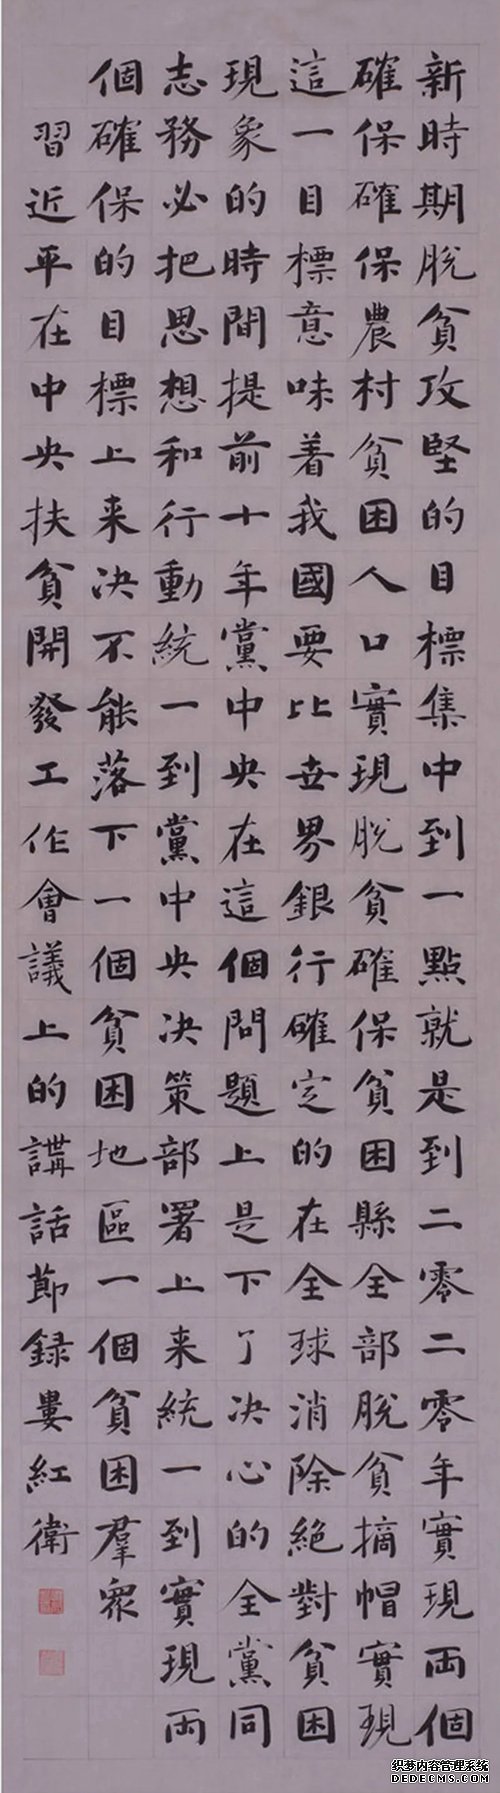 新時期脫貧攻堅的目標集中到一點就是到二零二零年實現両個
確保確保農村貧困人口實現脫貧確保貧困縣全部脫貧摘帽實現
這一目標意味着我國要比世界銀行確定的在全球消除絕對貧困
現象的時間提前十年黨中央在這個問題上是下了决心的全黨同
志務必把思想和行動統一到黨中央决策部署上来統一到實現両
個確保的目標上来决不能落下一個貧困地區一個貧困羣衆
習近平在中央扶貧開發工作會議上的講話節録婁紅衛
织梦内容管理系统
DEDECMS.COM